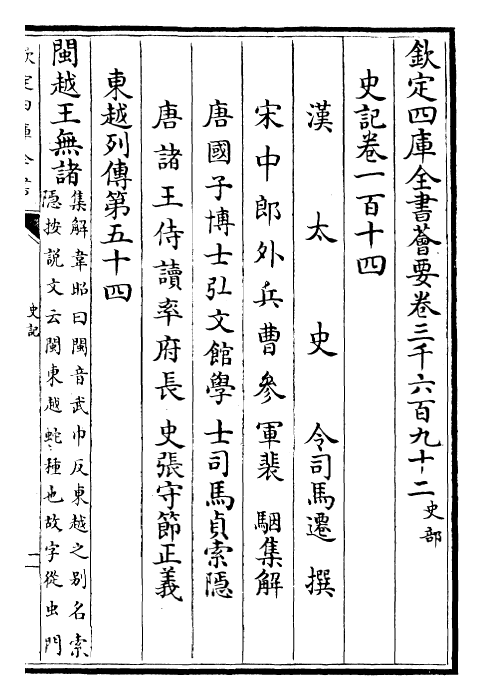 欽定四庫全書薈要卷三千六百九十二 史部
史記卷一百十四
漢太史令司馬遷撰
宋中郎外兵曹參軍裴駰集解
唐國子博士弘文館學士司馬貞索隱
唐諸王侍讀率府長史張守節正義
東越列傳第五十四
閩越王無諸
集解韋昭曰閩音武巾反東越之別名索
隱按說文云閩東越蛇種也故字從虫門
欽定四庫全書
史記
一